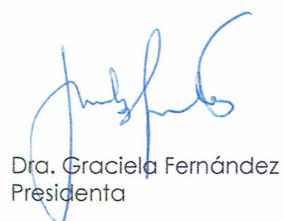 Dra. Graciela Fernández
Presidenta